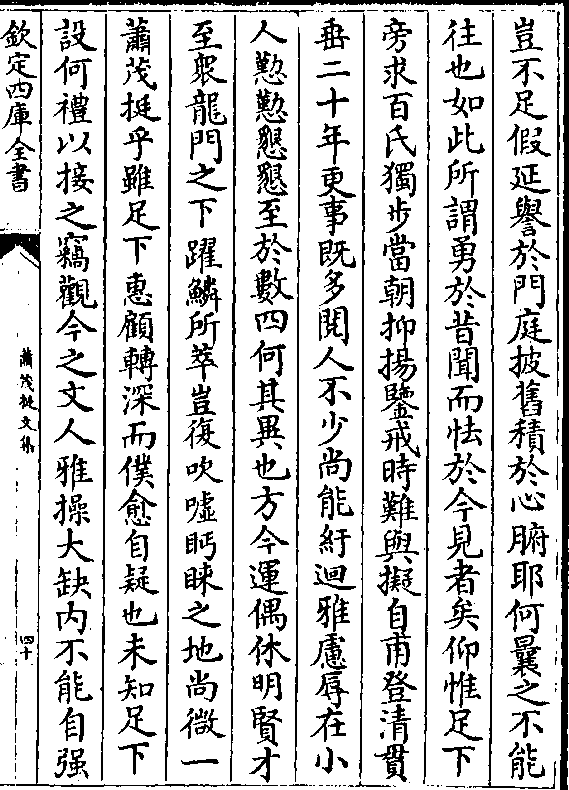 豈不足假延譽於門庭披舊積於心腑耶何曩之不能
往也如此所謂勇於昔聞而怯於今見者矣仰惟足下
旁求百氏獨步當朝抑揚鑒戒時難與擬自甫登清貫
垂二十年更事既多閱人不少尚能紆迴雅慮辱在小
人懃懃懇懇至於數四何其異也方今運偶休明賢才
至衆龍門之下躍鱗所萃豈復吹噓眄睞之地尚微一
蕭茂挺乎雖足下惠顧轉深而僕愈自疑也未知足下
設何禮以接之竊觀今之文人雅操大缺内不能自强
欽定四庫全書
蕭茂挺文集
四十